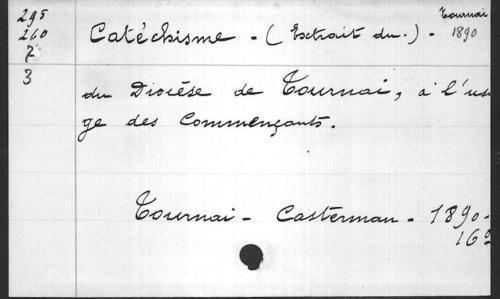 295
260
7
3
Tournai
1890
Catéchisme - (Extrait du.) -
du Diocèse de Tournai, à l'usa
ge des Commençants.
Tournai - Casterman - 1890-
16º